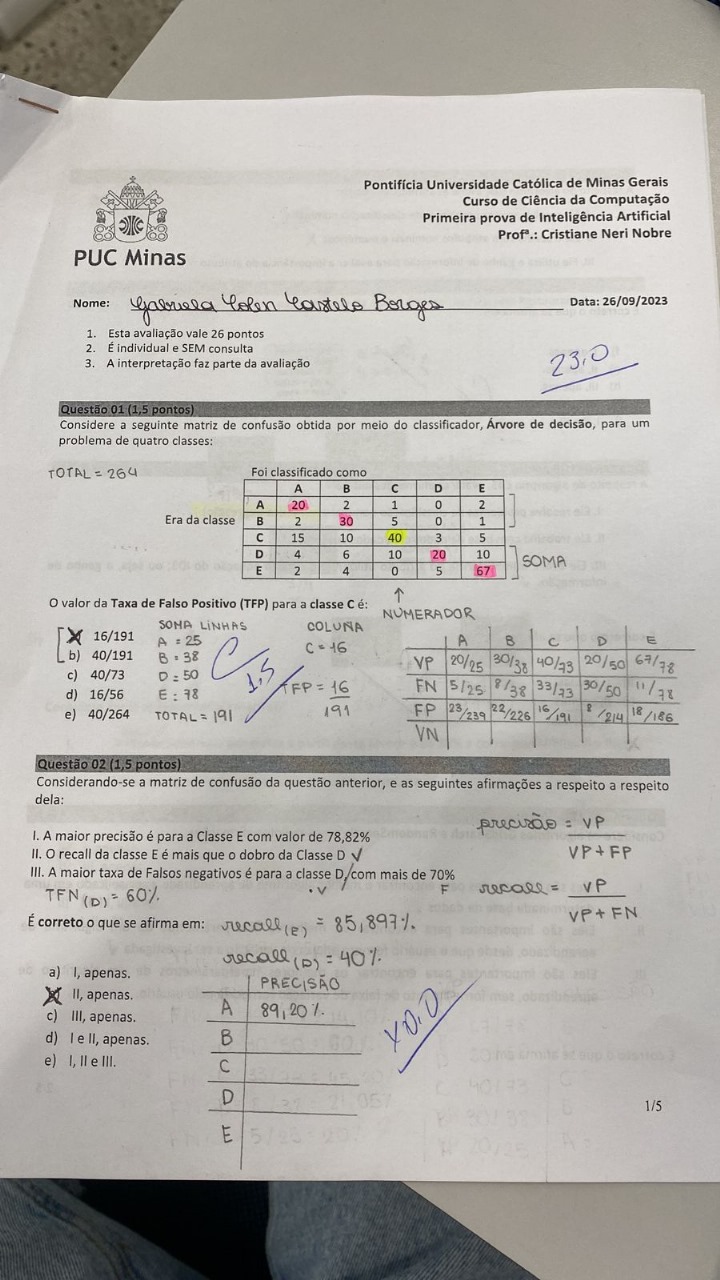 Pontifícia Universidade Católica de Minas Gerais
Curso de Ciência da Computação
Primeira prova de Inteligência Artificial
Profª.: Cristiane Neri Nobre
PUC Minas
Nome: Gabriela Colen Castelo Borges Data: 26/09/2023
1. Esta avaliação vale 26 pontos
2. É individual e SEM consulta
3. A interpretação faz parte da avaliação
23,0
Questão 01 (1,5 pontos)
Considere a seguinte matriz de confusão obtida por meio do classificador, Árvore de decisão, para um
problema de quatro classes:
TOTAL = 264
Foi classificado como
A B C D E
A 20 2 1 0 2
Era da classe B 2 30 5 0 1
C 15 10 40 3 5
D 4 6 10 20 10
E 2 4 0 5 67
SOMA
O valor da Taxa de Falso Positivo (TFP) para a classe C é:
NUMERADOR
a) 16/191
b) 40/191
c) 40/73
d) 16/56
e) 40/264
SOMA LINHAS
A = 25
B = 38
D = 50
E = 78
TOTAL = 191
COLUNA
C = 16
TFP = 16
191
C 1,5
A B C D E
VP 20/25 30/38 40/73 20/50 67/78
FN 5/25 8/38 33/73 30/50 11/78
FP 23/239 22/226 16/191 8/214 18/186
VN
Questão 02 (1,5 pontos)
Considerando-se a matriz de confusão da questão anterior, e as seguintes afirmações a respeito a respeito
dela:
precisão = VP
VP + FP
I. A maior precisão é para a Classe E com valor de 78,82%
II. O recall da classe E é mais que o dobro da Classe D V
III. A maior taxa de Falsos negativos é para a classe D, com mais de 70%
TFN (D) = 60% V F
recall = VP
VP + FN
É correto o que se afirma em:
recall (E) = 85,897%
recall (D) = 40%
a) I, apenas.
II, apenas.
c) III, apenas.
d) I e II, apenas.
e) I, II e III.
PRECISÃO
A 89,20%
B
C
D
E
X 0,0
1/5